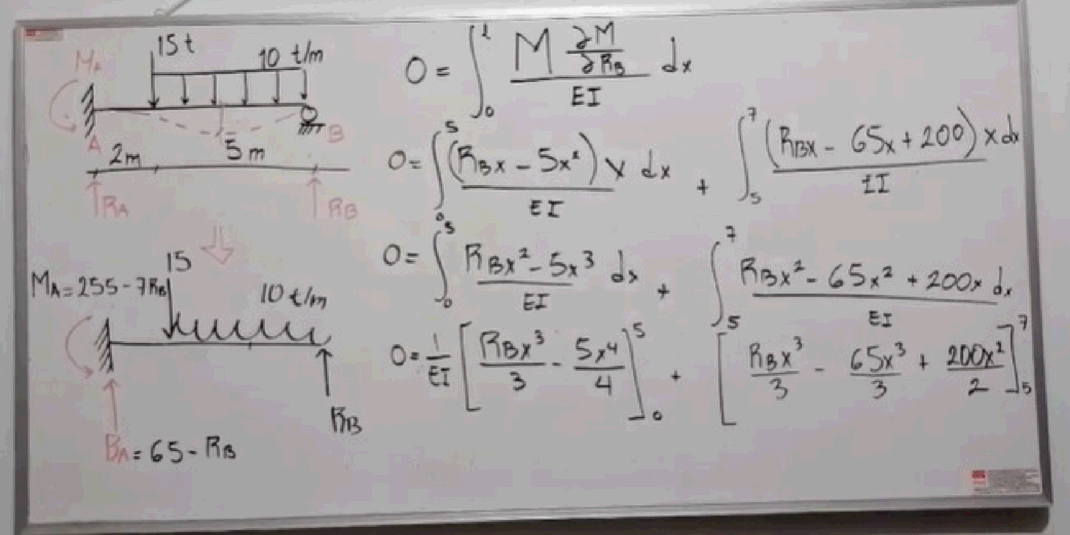 15t
10 t/m
M_A
A
B
2m
5m
R_A
R_B
15
M_A = 255 - 7R_B
10 t/m
R_B
B_A = 65 - R_B
0 = ∫₀ˡ (M ∂M/∂R_B)/EI dx
0 = ∫₀⁵ (R_Bx - 5x²) x dx / EI + ∫₅⁷ (R_Bx - 65x + 200) x dx / EI
0 = ∫₀⁵ (R_Bx² - 5x³)/EI dx + ∫₅⁷ (R_Bx² - 65x² + 200x dx)/EI
0 = 1/EI [R_Bx³/3 - 5x⁴/4]₀⁵ + [R_Bx³/3 - 65x³/3 + 200x²/2]₅⁷